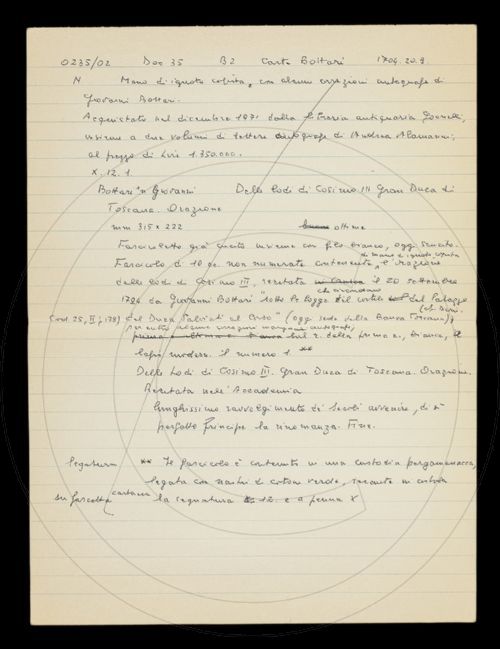 0235/02 Doc 35 B2 Carte Bottari 1724.20.9
N Mano di ignoto copista, con alcune correzioni autografe di
Giovanni Bottari.
Acquistato nel dicembre 1971 dalla libreria antiquaria Gonnelli,
insieme a due volumi di lettere autografe di Andrea Alamanni,
al prezzo di Lire 1.350.000.
X.12.1
Bottari Giovanni Delle lodi di Cosimo III Gran Duca di
Toscana. Orazione
mm 315 x 222 buono ottimo
Fascicoletto già cucito insieme con filo bianco, oggi scucito.
di mano di ignoto copista
Fascicolo di 10 cc. non numerate contenente, l'orazione
delle lodi di Cosimo III, recitata il 20 settembre
che circondano
1724 da Giovanni Bottari sotto le logge del cortile del Palazzo
(cfr.
Cod. 25, II, p. 178) del Duca Salviati al Corso" (oggi sede della Banca Toscana);
per mettere alcune correzioni marginali autografe,
sul r. della prima c., bianca, il
lapis moderno il numero 1. **
Delle Lodi di Cosimo III. Gran Duca di Toscana. Orazione.
Recitata nell'Accademia
lunghissimo ravvolgimento di secoli avvenire, di sì
perfetto Principe la rinomanza. Fine.
legatura ** Il fascicolo è contenuto in una custodia pergamenacea,
legata con nastri di cotone verde, recante in
su fascetta cartacea la segnatura 12. e a penna X